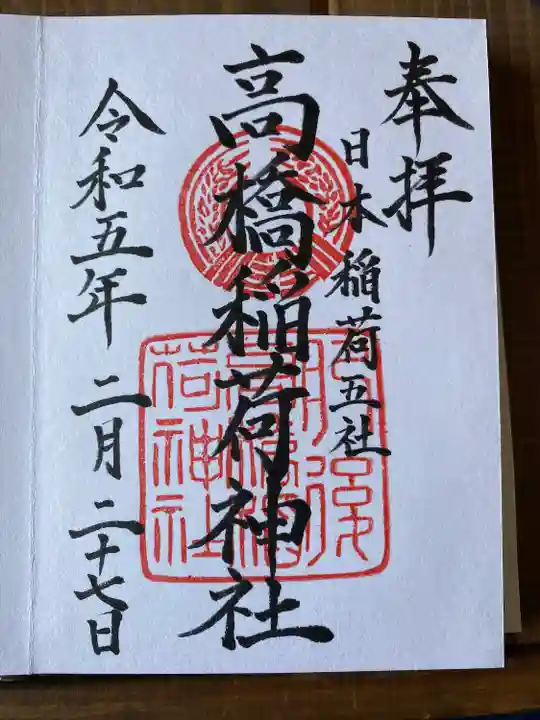 奉拝
日本稲荷五社
高橋稲荷神社
令和五年二月二十七日